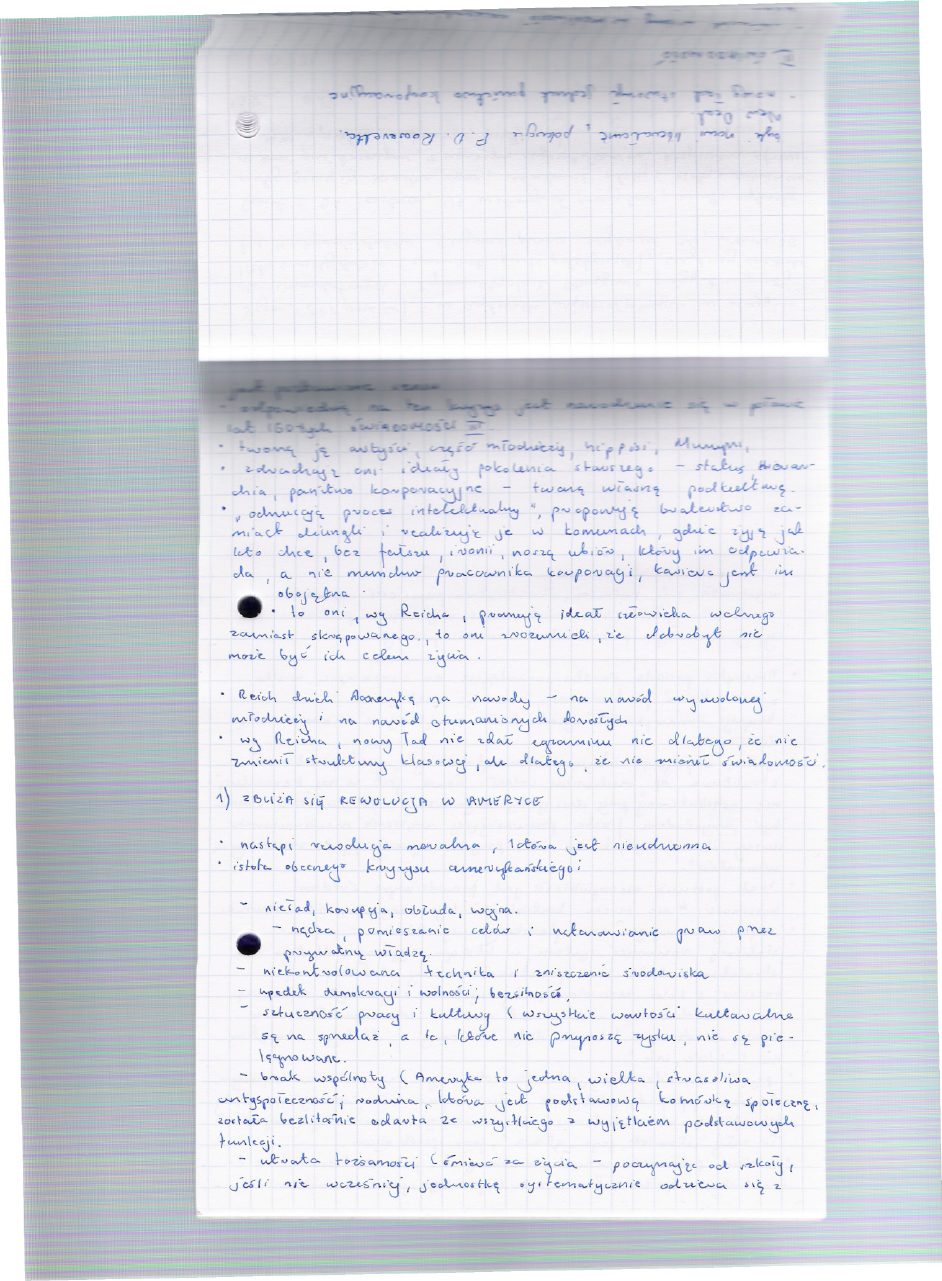 II świadomość
- nowy ład stworzył jednak państwo korporacyjne
New Deal
był nowi liberałowie, pokroju F. D. Roosevelta.
jest
- odpowiedzią na ten kryzys jest narodzenie się w plawie
lat 60-tych świadomości III.
• tworzą ją artyści, część młodzieży, hippisi, Murzyni,
• zdradzają oni ideały pokolenia starszego – status, hierar-
chia, państwo korporacyjne – tworzą własną podkulturę.
• „odrzucają proces intelektualny", proponują braterstwo za-
miast dżungli i realizują je w komunach, gdzie żyją jak
kto chce, bez fałszu, ironii, noszą ubiór, który im odpowia-
da, a nie mundur pracownika korporacji, kariera jest im
obojętna.
• to oni, wg Reicha, promują ideał człowieka wolnego
zamiast skrępowanego, to oni zrozumieli, że dobrobyt nie
może być ich celem życia.
• Reich dzieli Amerykę na narody – na naród wyzwolonej
młodzieży i na naród otumanionych dorosłych
• wg Reicha, nowy ład nie zdał egzaminu nie dlatego, że nie
zmienił struktury klasowej, ale dlatego, że nie zmienił świadomości.
1) ZBLIŻA SIĘ REWOLUCJA W AMERYCE
• nastąpi rewolucja moralna, która jest nieuchronna
• istota obecnego kryzysu amerykańskiego:
- nieład, korupcja, obłuda, wojna.
- nędza, pomieszanie celów i ustanawianie praw przez
prywatną władzę.
- niekontrolowana technika i zniszczenie środowiska
- upadek demokracji i wolności; bezsilność,
- sztuczność pracy i kultury (wszystkie wartości kulturalne
są na sprzedaż, a te, które nie przynoszą zysku, nie są pie-
lęgnowane.
- brak wspólnoty (Ameryka to jedna, wielka, straszliwa
antyspołeczność; rodzina, która jest podstawową komórką społeczną,
została bezlitośnie odarta ze wszystkiego z wyjątkiem podstawowych
funkcji.
- utrata tożsamości (śmierć za życia – poczynając od szkoły,
jeśli nie wcześniej, jednostkę systematycznie odziera się z